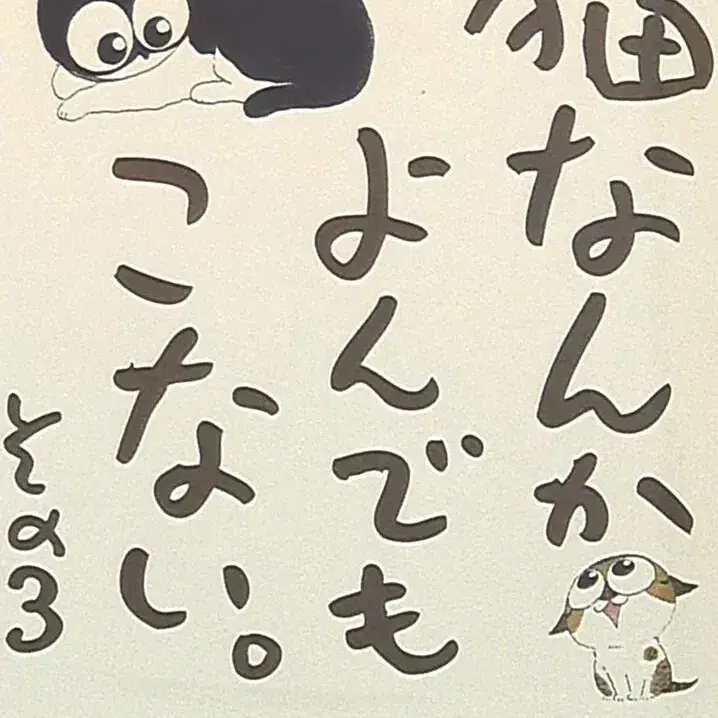 猫なんか
よんでも
こない。
その3